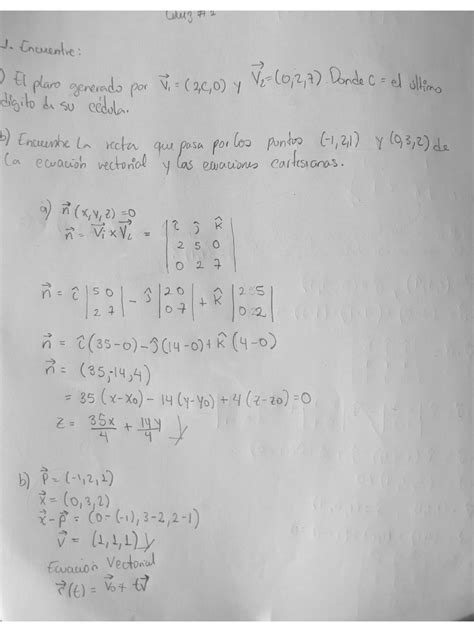 1. Encuentre:
a) El plano generado por V₁ = (2,C,0) y V₂ = (0,2,7) Donde C = el último
dígito de su cédula.
b) Encuentre La recta que pasa por los puntos (-1,2,1) y (0,3,2) de
La ecuación vectorial y las ecuaciones cartesianas.
a) n⃗ (x,y,z) = 0
n⃗ = V₁ x V₂ = | î ĵ k̂ |
| 2 5 0 |
| 0 2 7 |
n⃗ = î |5 0| - ĵ |2 0| + k̂ |2 5|
|2 7| |0 7| |0 2|
n⃗ = î (35-0) - ĵ (14-0) + k̂ (4-0)
n⃗ = (35,-14,4)
= 35 (x-x₀) - 14 (y-y₀) + 4 (z-z₀) = 0
z = 35x/4 + 14y/4
b) p⃗ = (-1,2,1)
x⃗ = (0,3,2)
x⃗ - p⃗ = (0-(-1), 3-2, 2-1)
v⃗ = (1,1,1)
Ecuación Vectorial
r⃗(t) = v₀ + tv⃗